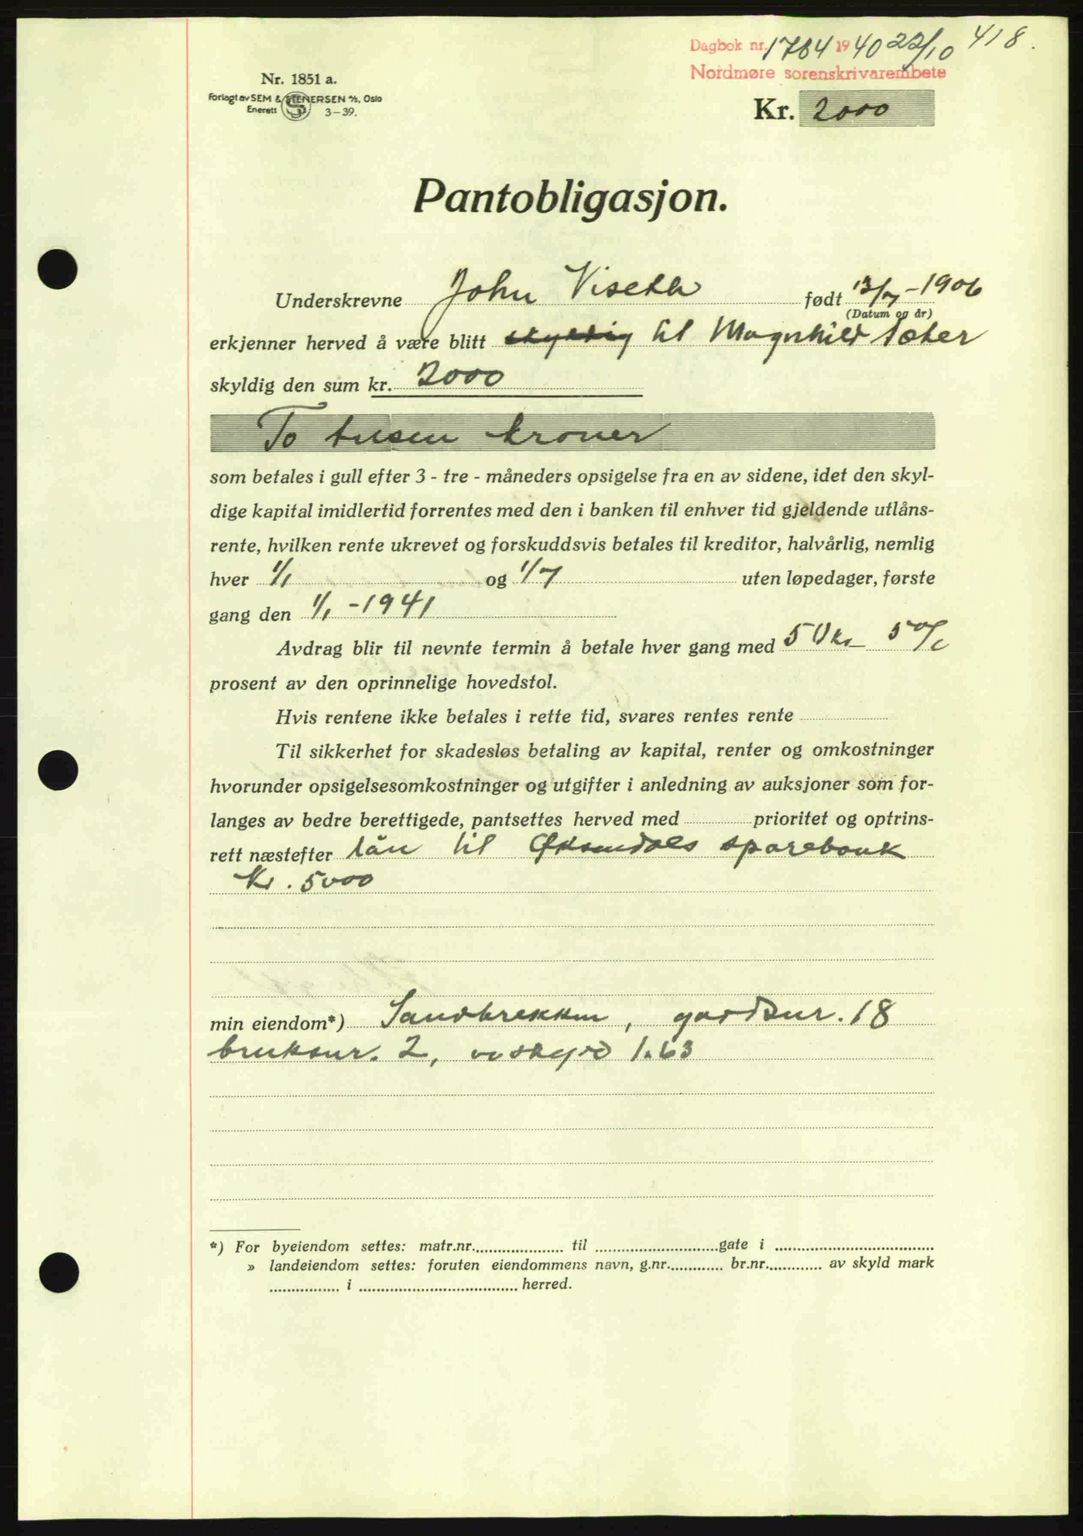 Dagbok nr. 1784 1940 22/10 418.
Nordmøre sorenskrivarembete
Nr. 1851 a.
Forlagt av SEM & STENERSEN A/S, Oslo
Enerett 3-39.
Kr. 2000
Pantobligasjon.
Underskrevne John Viseth født 13/7-1906
(Datum og år)
erkjenner herved å være blitt skyldig til Magnhild Sæter
skyldig den sum kr. 2000
To tusen kroner
som betales i gull efter 3 - tre - måneders opsigelse fra en av sidene, idet den skyl-
dige kapital imidlertid forrentes med den i banken til enhver tid gjeldende utlåns-
rente, hvilken rente ukrevet og forskuddsvis betales til kreditor, halvårlig, nemlig
hver 1/1 og 1/7 uten løpedager, første
gang den 1/1-1941
Avdrag blir til nevnte termin å betale hver gang med 50 kr 5%
prosent av den oprinnelige hovedstol.
Hvis rentene ikke betales i rette tid, svares rentes rente
Til sikkerhet for skadesløs betaling av kapital, renter og omkostninger
hvorunder opsigelsesomkostninger og utgifter i anledning av auksjoner som for-
langes av bedre berettigede, pantsettes herved med prioritet og optrins-
rett næstefter lån til Øksendals sparebank
Kr. 5000
min eiendom*) Sandbrekken, gardsnr. 18
bruksnr. 2, av skyld 1.63
*) For byeiendom settes: matr.nr. til gate i
» landeiendom settes: foruten eiendommens navn, g.nr. br.nr. av skyld mark
i herred.